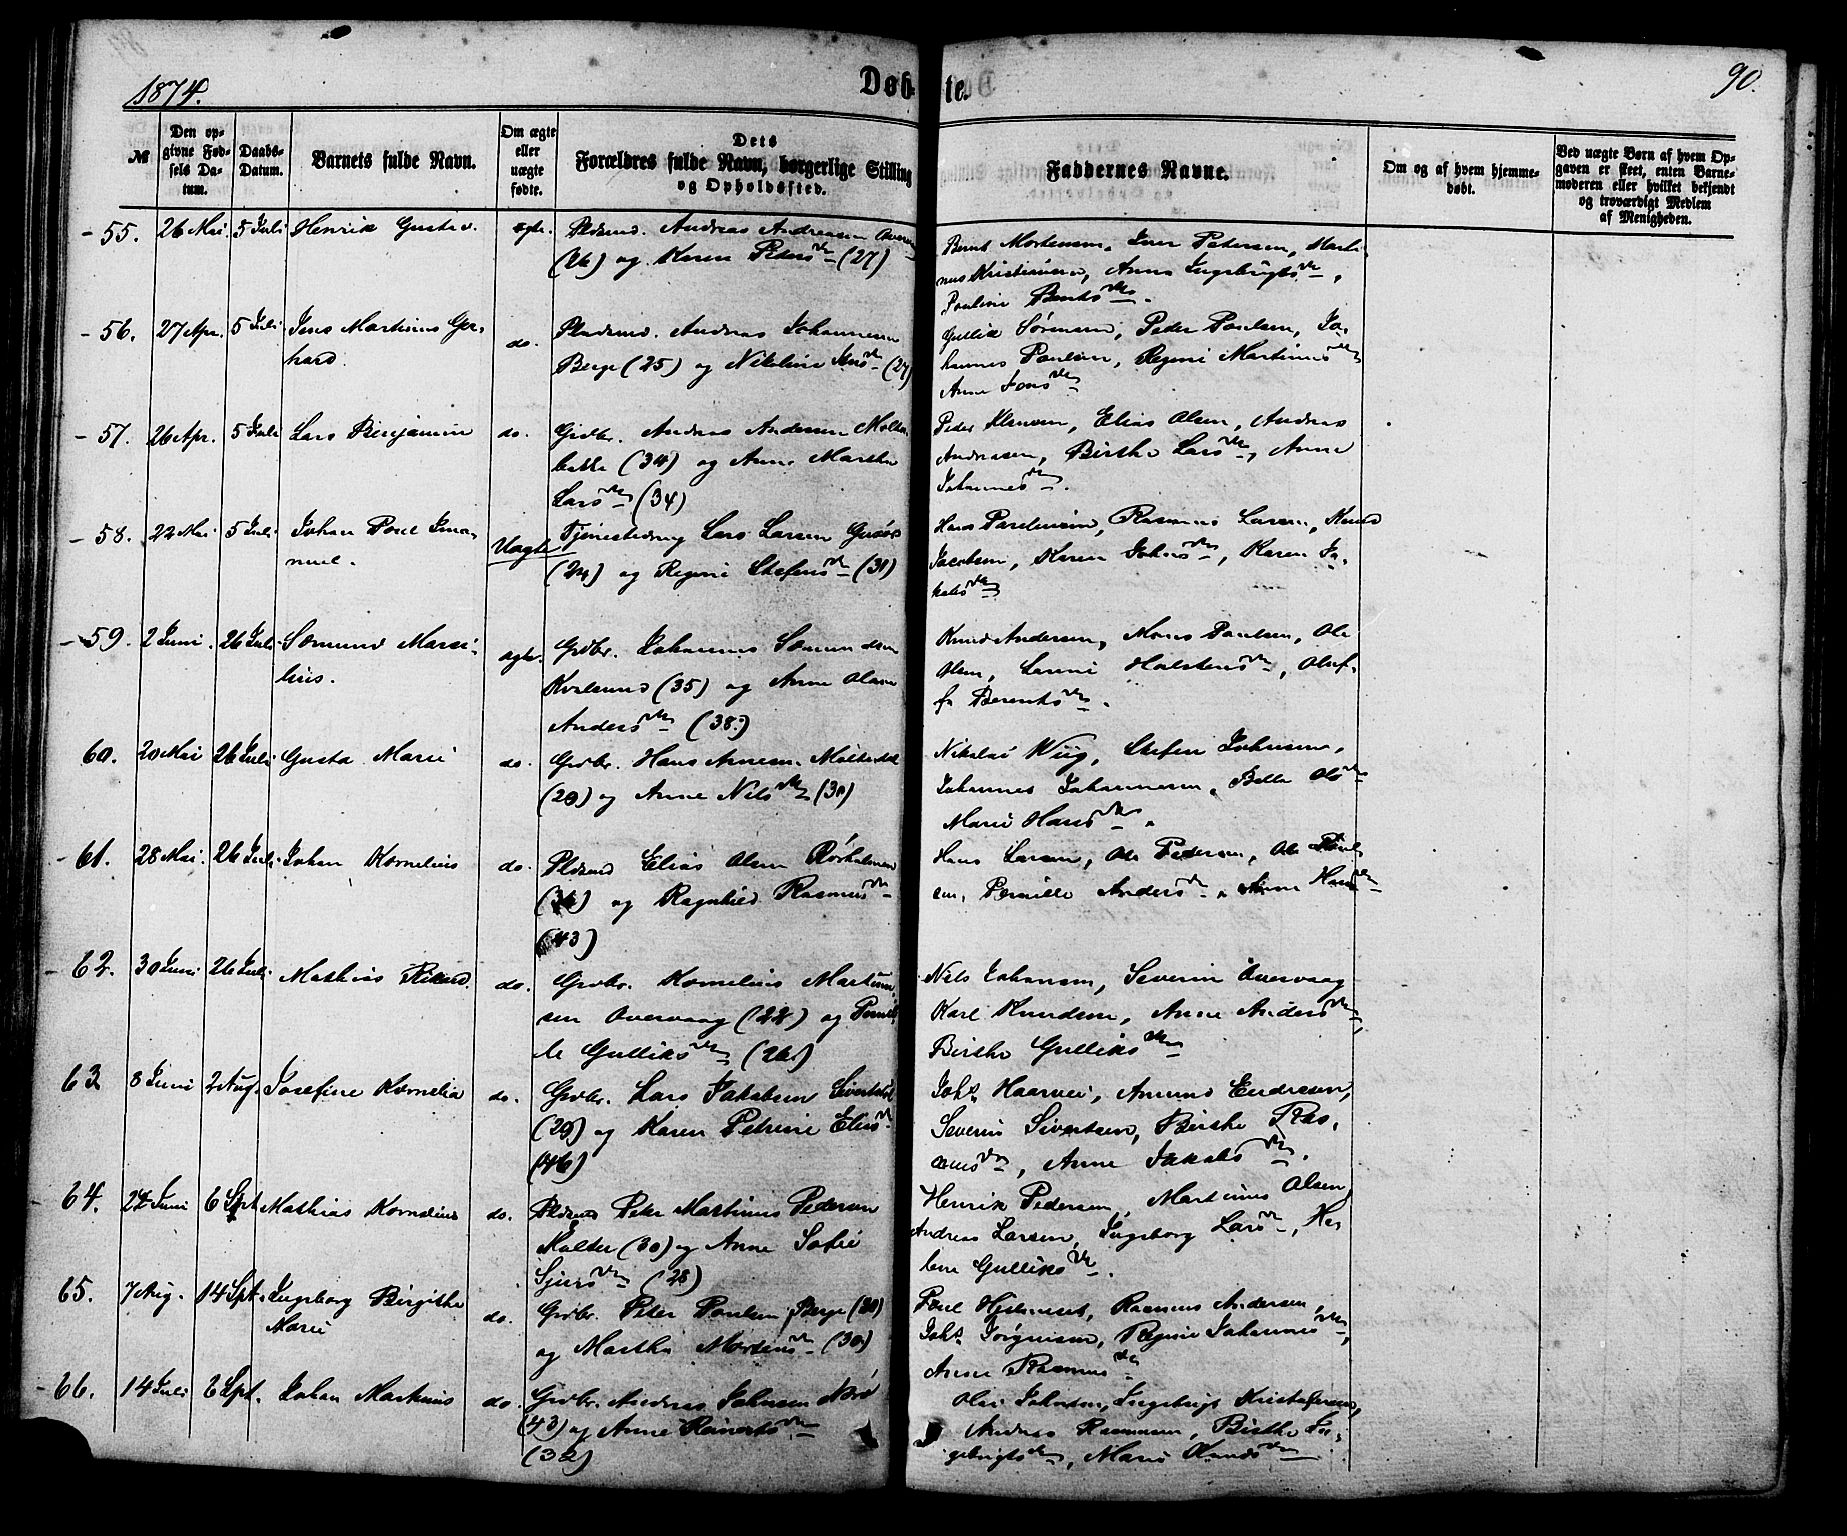 1874.
Døb-
te.
90.
№
Den op-
givne Fød-
sels Da-
tum.
Daabs-
Datum.
Barnets fulde Navn.
Om ægte
eller
uægte
fødte.
Dets
Forældres fulde Navn, borgerlige Stilling
og Opholdssted.
Faddernes Navne.
Om og af hvem hjemme-
døbt.
Ved uægte Børn af hvem Op-
gaven er skeet, enten Barne-
moderen eller hvilket bekjendt
og troværdigt Medlem
af Menigheden.
55. 26 Mai. 5 Juli Henrik Gustav. ægte. Pldsmd. Andreas Andreasen
(26) og Karen Peders (27)
Bernt Mortensen, Iver Petersen, Marti-
nus Kristiansen, Anna Ingebrigts,
Pauline Bernts.
56. 27 Apr. 5 Juli Jens Martinus Ger-
hard. do. Pladsmd. Andreas Johannesen
Berge (25) og Nikoline Jens (27)
Gullik Sørensen, Peder Paulsen, Jo-
hannes Paulsen, Regine Martinus
Anne Jens
57. 26 Apr. 5 Juli Lars Benjamin do. Grdbr. Andreas Andersen Molte-
bakke (34) og Anne Martha
Lars (34)
Peder Hansen, Elias Olsen, Andreas
Andreasen, Birthe Lars, Anne
Johannes.
58. 22 Mai 5 Juli Johan Poul Ima-
nuel. Uægte Tjenestedreng Lars Larsen
(24) og Regine Stefens (31)
Hans Rasmus Larsen, Knud
Jacobsen, Karen Johns, Karen Ja-
kobs
59. 2 Juni. 26 Juli Sæmund Marsi-
lius. ægte. Grdbr. Johannes Sæmundsen
Kvalsund (35) og Anne Olava
Anders (38.)
Knud Andersen, Mons Paulsen, Ole
Olsen, Lavine Halstens, Oluf-
fa Berents.
60. 20 Mai 26 Juli Gusta Marie do. Grdbr. Hans Arnesen
(29) og Anne Nils (30)
Nikolai Wiig, Stefen Johnsen,
Johannes Johannesen, Bella Ols
Marie Hans.
61. 28 Mai. 26 Juli. Johan Kornelius do. Pldsmd Elias Olsen Rørholmen
(36) og Ragnhild Rasmus
(43)
Hans Larsen, Ole Pedersen, Ole Poul-
sen, Pernille Anders, Anne Hans
62. 30 Juni 26 Juli. Mathias Rikard. do. Grdbr. Kornelius Martinus-
sen Overvaag (22) og Pernil-
le Gulliks (26.)
Nils Johansen, Severin Overvaag
Karl Knudsen, Anne Anders,
Birthe Gulliks
63 8 Juni 2 Aug. Josefine Kornelia do. Grdbr. Lars Jakobsen
(29) og Karen Petrine Elias
(46)
Johs Haarvei, Amund Endresen,
Severin Sivertsen, Birthe Ras-
mus, Anne Jakobs.
64. 22 Juni 6 Spt Mathias Kornelius do. Pldsmd Peter Martinus Pedersen
Molter (30) og Anne Sofie
Sjurs (28)
Henrik Pedersen, Martinus Olsen
Andreas Larsen, Ingeborg Lars, He-
lene Gulliks.
65. 7 Aug. 14 Spt. Ingeborg Birgithe
Marie do. Grdbr. Peter Poulsen Berge (30)
og Martha Mortens (30)
Poul Rasmus Andersen,
Johs Jørgensen, Regine Johannes,
Anne Rasmus
66. 14 Juli 6 Spt. Johan Martinus do. Grdbr. Andreas Johnsen Nerø
(43) og Anne Reinerts
(32)
Ole Ingebrigt Kristofersen,
Andreas Rasmussen, Birthe In-
gebrigts, Marie Knuds